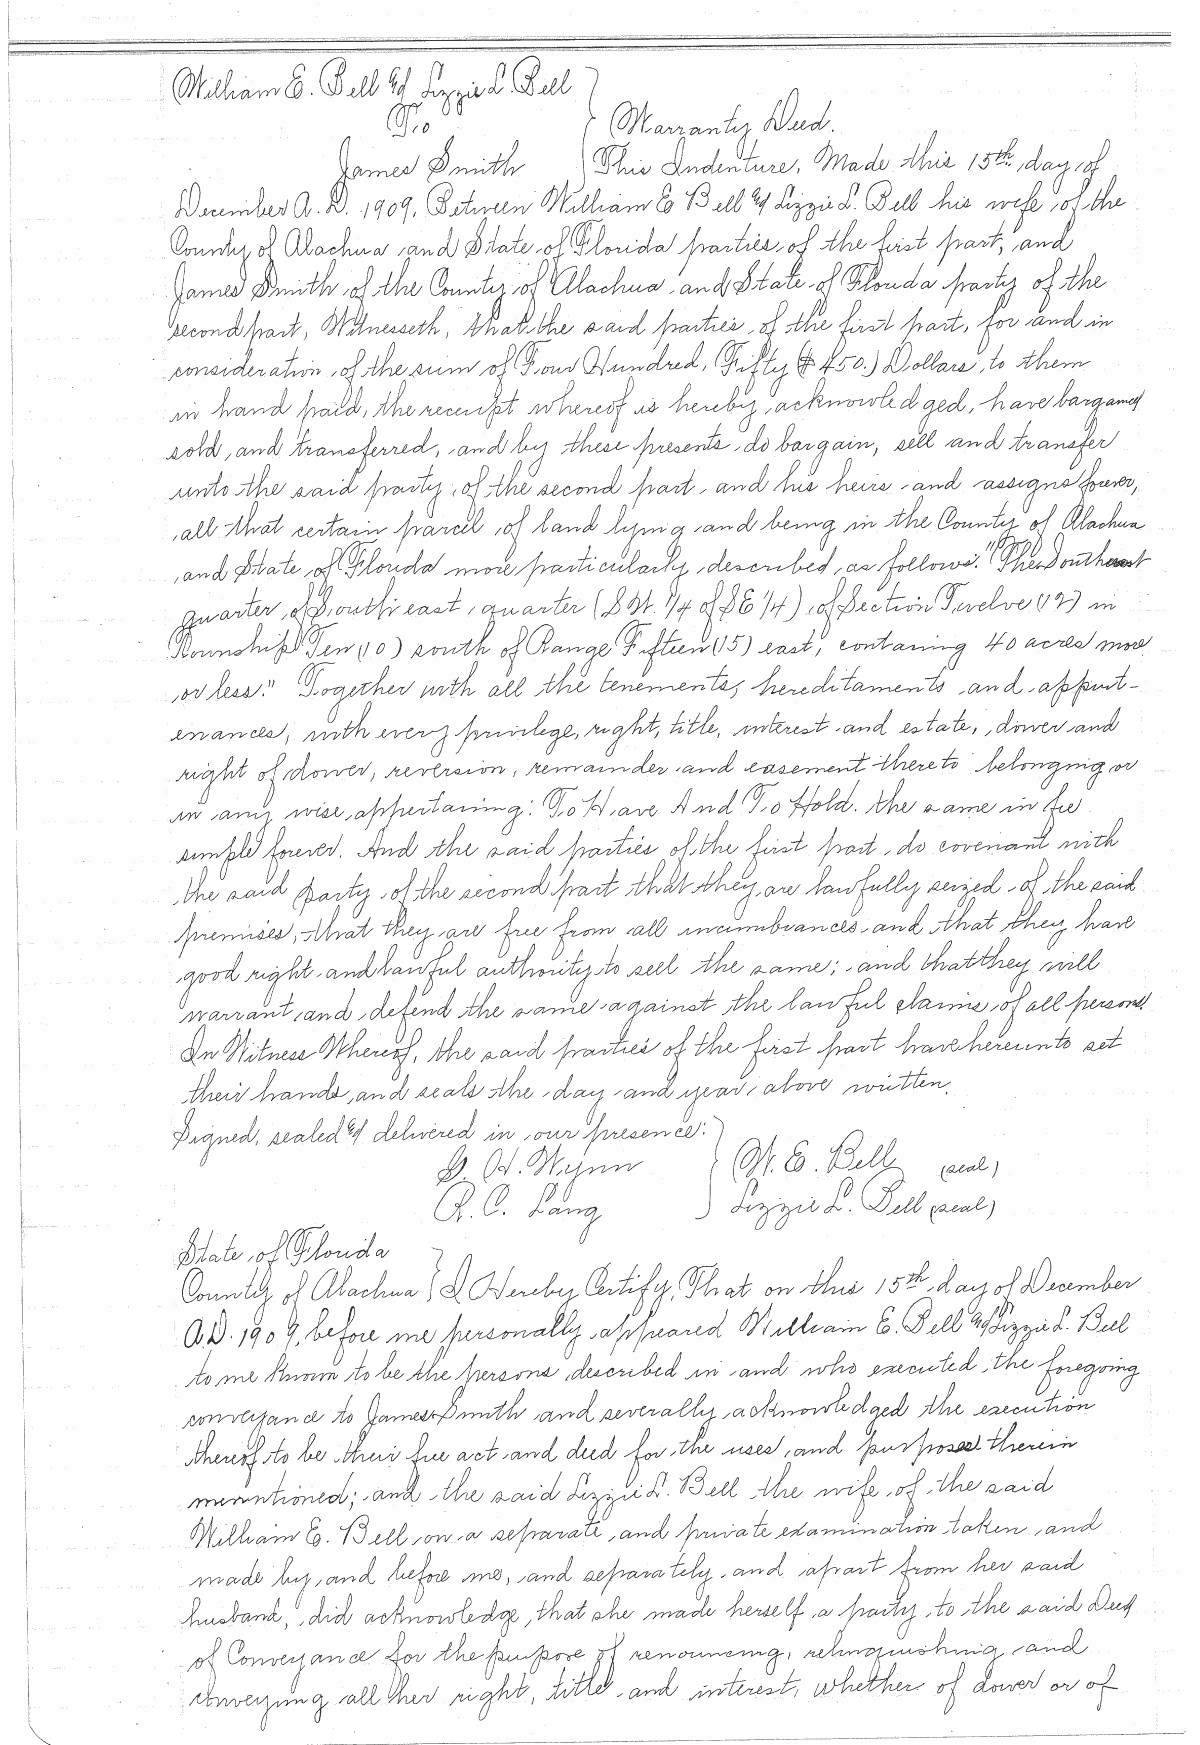 William E. Bell & Lizzie L. Bell
To
Warranty Deed.
James Smith This Indenture, Made this 15th day of
December A. D. 1909, Between William E Bell & Lizzie L. Bell his wife of the
County of Alachua and State of Florida parties of the first part, and
James Smith of the County of Alachua and State of Florida party of the
second part, Witnesseth, that the said parties of the first part, for and in
consideration of the sum of Four Hundred, Fifty ($450.) Dollars, to them
in hand paid, the receipt whereof is hereby acknowledged, have bargained
sold, and transferred, and by these presents do bargain, sell and transfer
unto the said party of the second part and his heirs and assigns forever,
all that certain parcel of land lying and being in the County of Alachua
and State of Florida more particularly described as follows: "The Southwest
quarter of South east quarter (S.W. 1/4 of SE 1/4) of Section Twelve (12) in
Township Ten (10) south of Range Fifteen (15) east, containing 40 acres more
or less." Together with all the tenements, hereditaments and appurt-
enances, with every privilege, right, title, interest and estate, dower and
right of dower, reversion, remainder and easement thereto belonging or
in any wise appertaining: To Have And To Hold. the same in fee
simple forever. And the said parties of the first part do covenant with
the said party of the second part that they are lawfully seized of the said
premises, that they are free from all incumbrances and that they have
good right and lawful authority to sell the same; and that they will
warrant and defend the same against the lawful claims of all persons.
In Witness Whereof, the said parties of the first part have hereunto set
their hands and seals the day and year above written.
Signed, sealed & delivered in our presence:
G. H. Wynn W. E. Bell (seal)
R. C. Lang Lizzie L. Bell (seal)
State of Florida
County of Alachua I Hereby Certify, That on this 15th day of December
A.D. 1909, before me personally appeared William E. Bell & Lizzie L. Bell
to me known to be the persons described in and who executed the foregoing
conveyance to James Smith and severally acknowledged the execution
thereof to be their free act and deed for the uses and purposes therein
mentioned; and the said Lizzie L. Bell the wife of the said
William E. Bell on a separate and private examination taken and
made by and before me, and separately and apart from her said
husband, did acknowledge, that she made herself a party to the said Deed
of Conveyance for the purpose of renouncing, relinquishing and
conveying all her right, title and interest, whether of dower or of